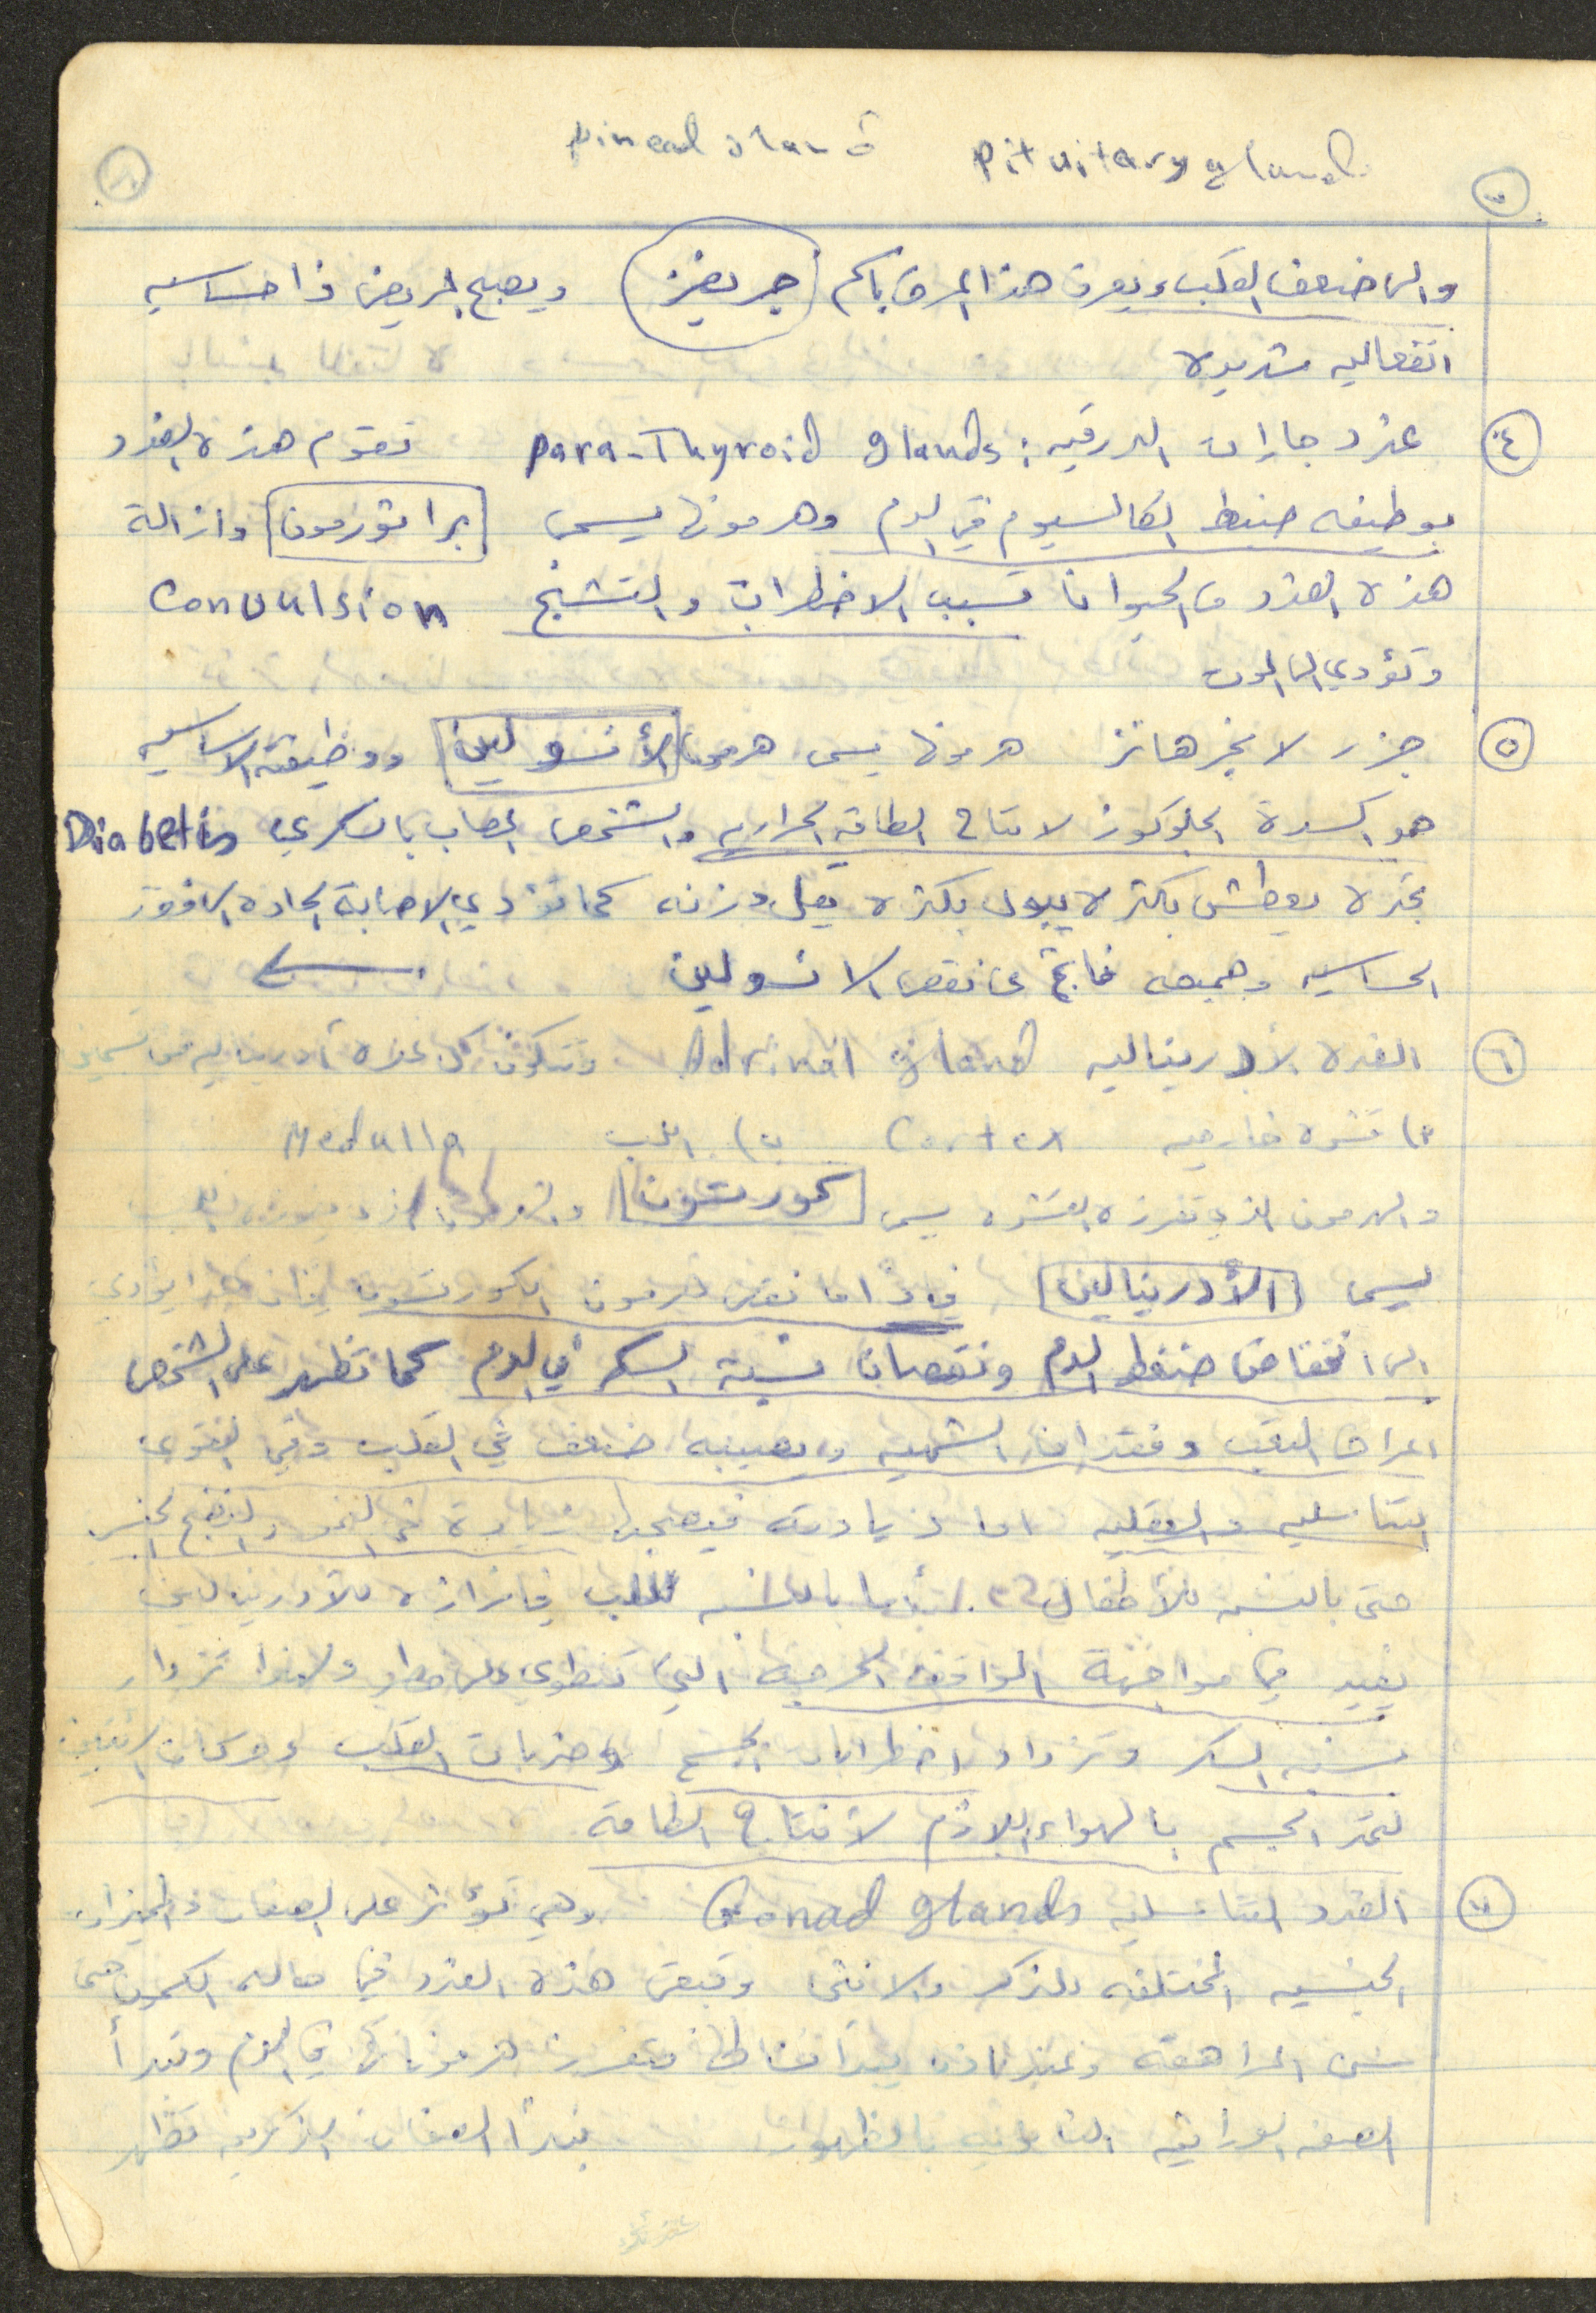 pineal gland pituitary gland
والى ضعف القلب ويعرف هذا المرض باسم جريفز ويصبح المريض ذا حساسيه
انفعاليه شديده
٤ غدد جارات الدرقيه : para-Thyroid glands تقوم هذه الغدد
بوظيفه ضبط الكالسيوم في الدم وهرمونها يسمى براثورمون وازالة
هذه الغدد من الحيوانات تسبب الاضطراب والتشنج Convulsion
وتؤدي الى الموت
٥ جزر لانجرهانز هرمونها يسمى هرمون الأنسولين ووظيفته الاساسيه
هو اكسدة الجلوكوز لانتاج الطاقه الحراريه والشخص المصاب بالسكري Diabetis
تجده يعطش بكثره يبول بكثره يقل وزنه كما تؤدي الاصابة الحاده الى فقد
الحساسيه وجميعه ناتج عن نقص الانسولين
٦ الغده الأدريناليه Adrinal gland وتتكون كل غده أدريناليه من قسمين
أ) قشره خارجيه Cortex ب) اللب Medulla
والهرمون الذي تفرزه القشره يسمى كورتزون والهرمون الذي يفرزه اللب
يسمى الأدرينالين فاذا ما نقص هرمون الكورتزون فإن هذا يؤدي
الى انخفاض ضغط الدم ونقصان نسبة السكر في الدم كما تظهر على الشخص
اعراض التعب وفقدان الشهيه ويصيبه ضعف في القلب وفي القوى
التناسليه والعقليه اما زيادته فيصحبها زيادة في النمو والنضج الجنسي
حتى بالنسبه للأطفال أما بالنسبه للب فإفرازه للأدرينالين
يفيد في مواجهة المواقف الحرجه التي تنطوي على خطر ولهذا تزداد
نسبه السكر وتزداد اضطرابات الجسم وضربات القلب وحركات التنفس
لتمد الجسم بالهواء اللازم لأنتاج الطاقه
٧ الغدد التناسليه Gonad glands وهي تؤثر على الصفات والميزات
الجنسيه المختلفه للذكر والانثى وتبقى هذه الغدد في حاله الكمون حتى
سن المراهقه وعندئذ يبدأ نشاطها فتفرز هرموناتها في الدم وتبدأ
الصفه الوراثيه الثانويه بالظهور فتبدأ الصفات الذكريه تظهر